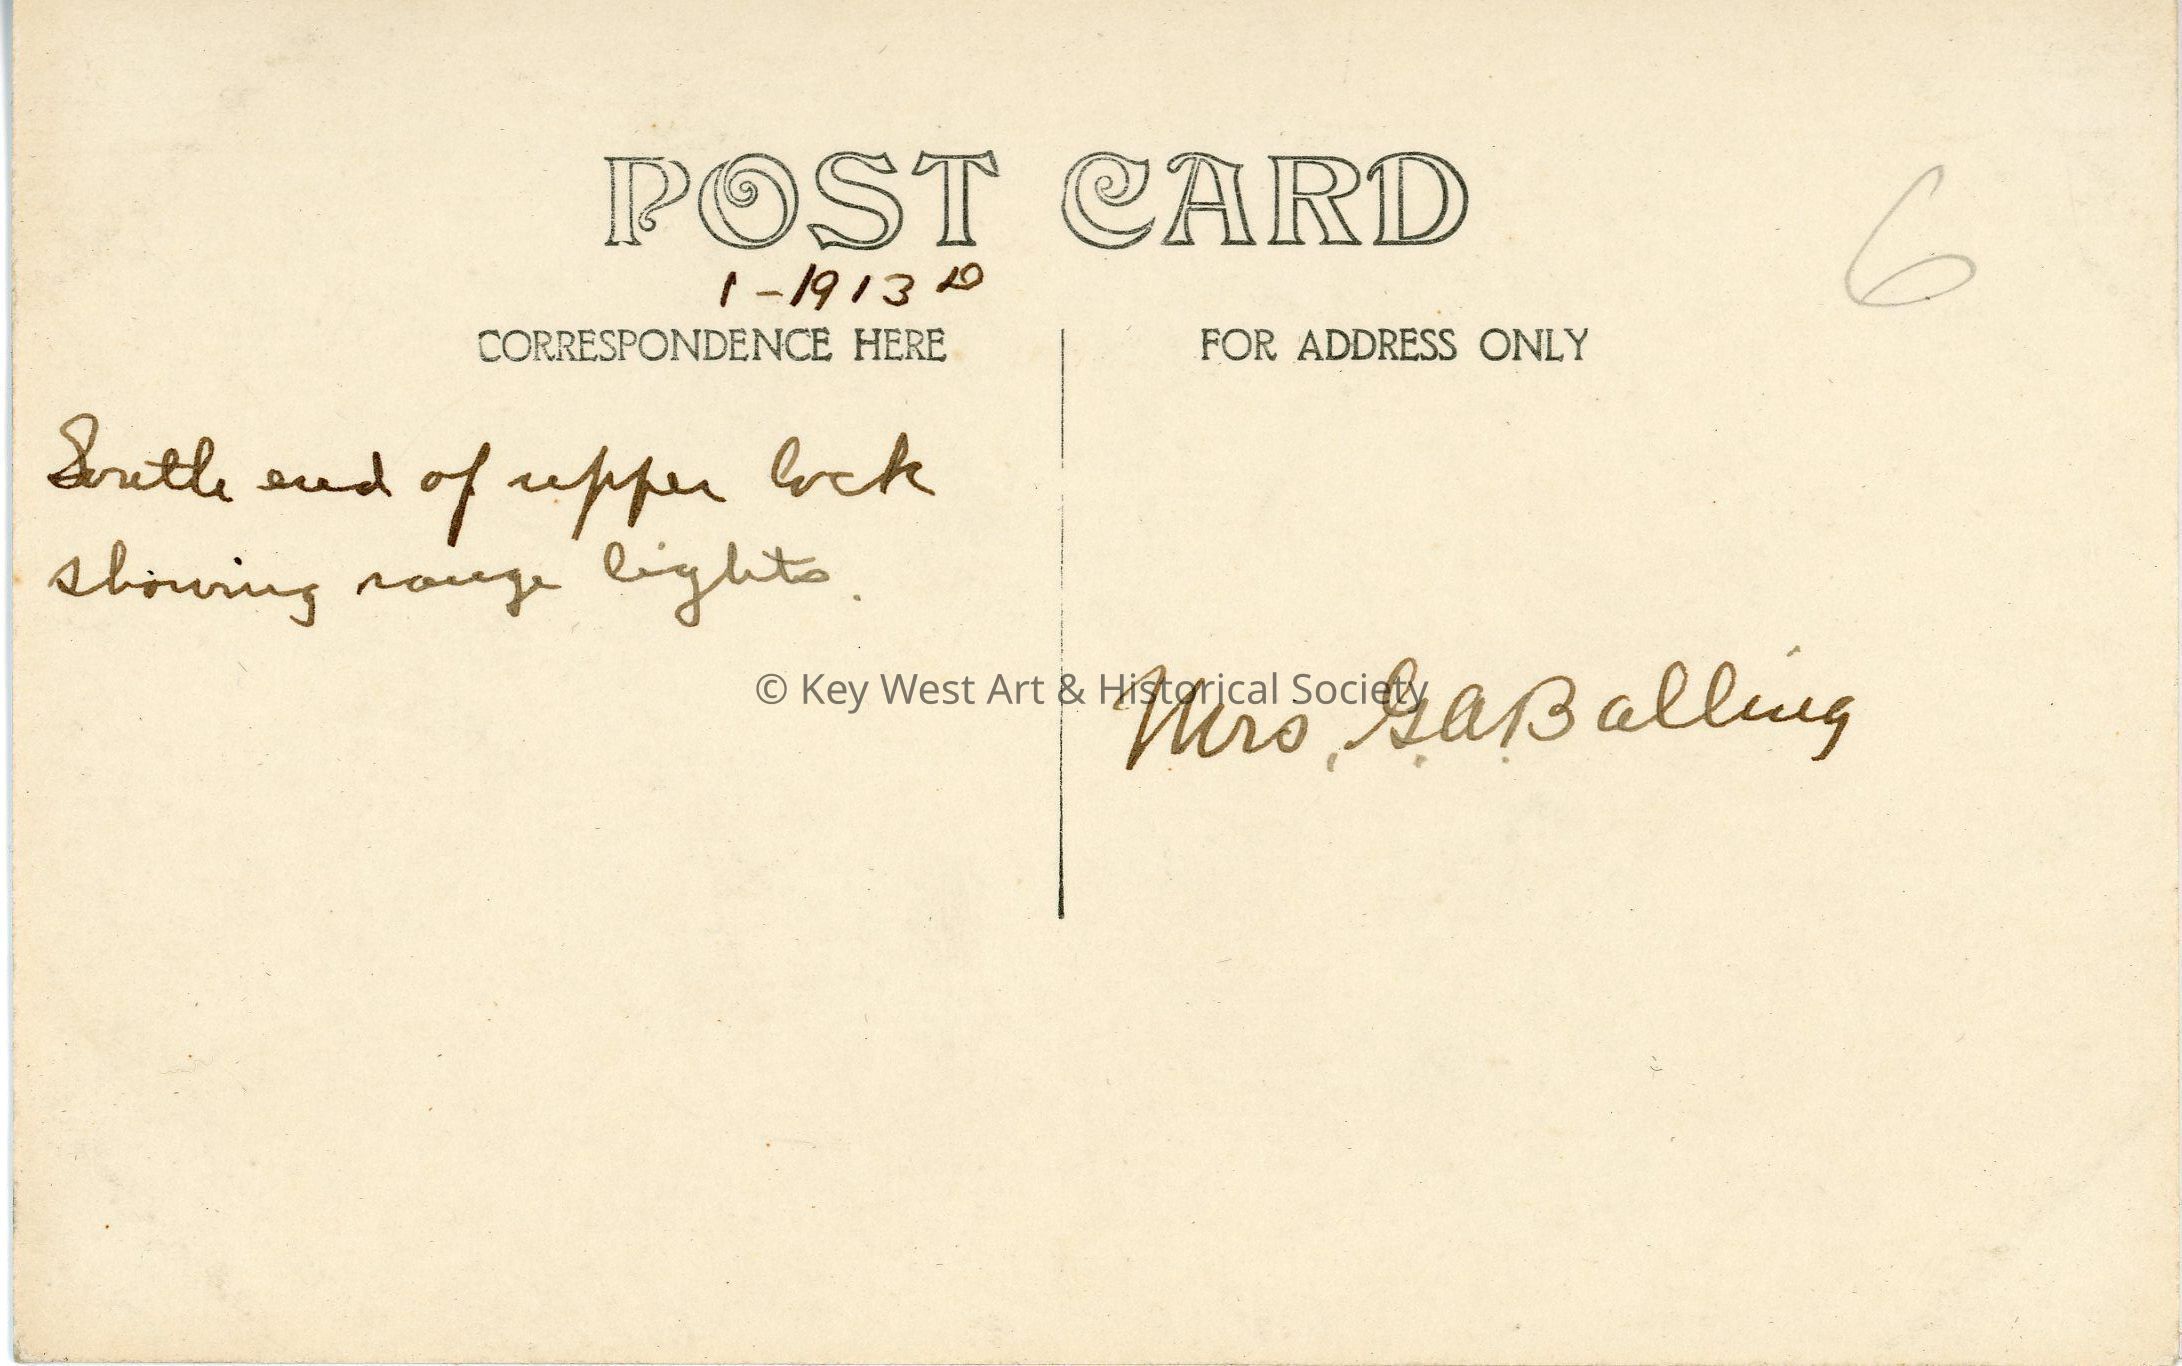 POST CARD
6
1-1913
CORRESPONDENCE HERE
FOR ADDRESS ONLY
South end of upper lock
showing range lights.
© Key West Art & Historical Society
Mrs. G.A. Balling